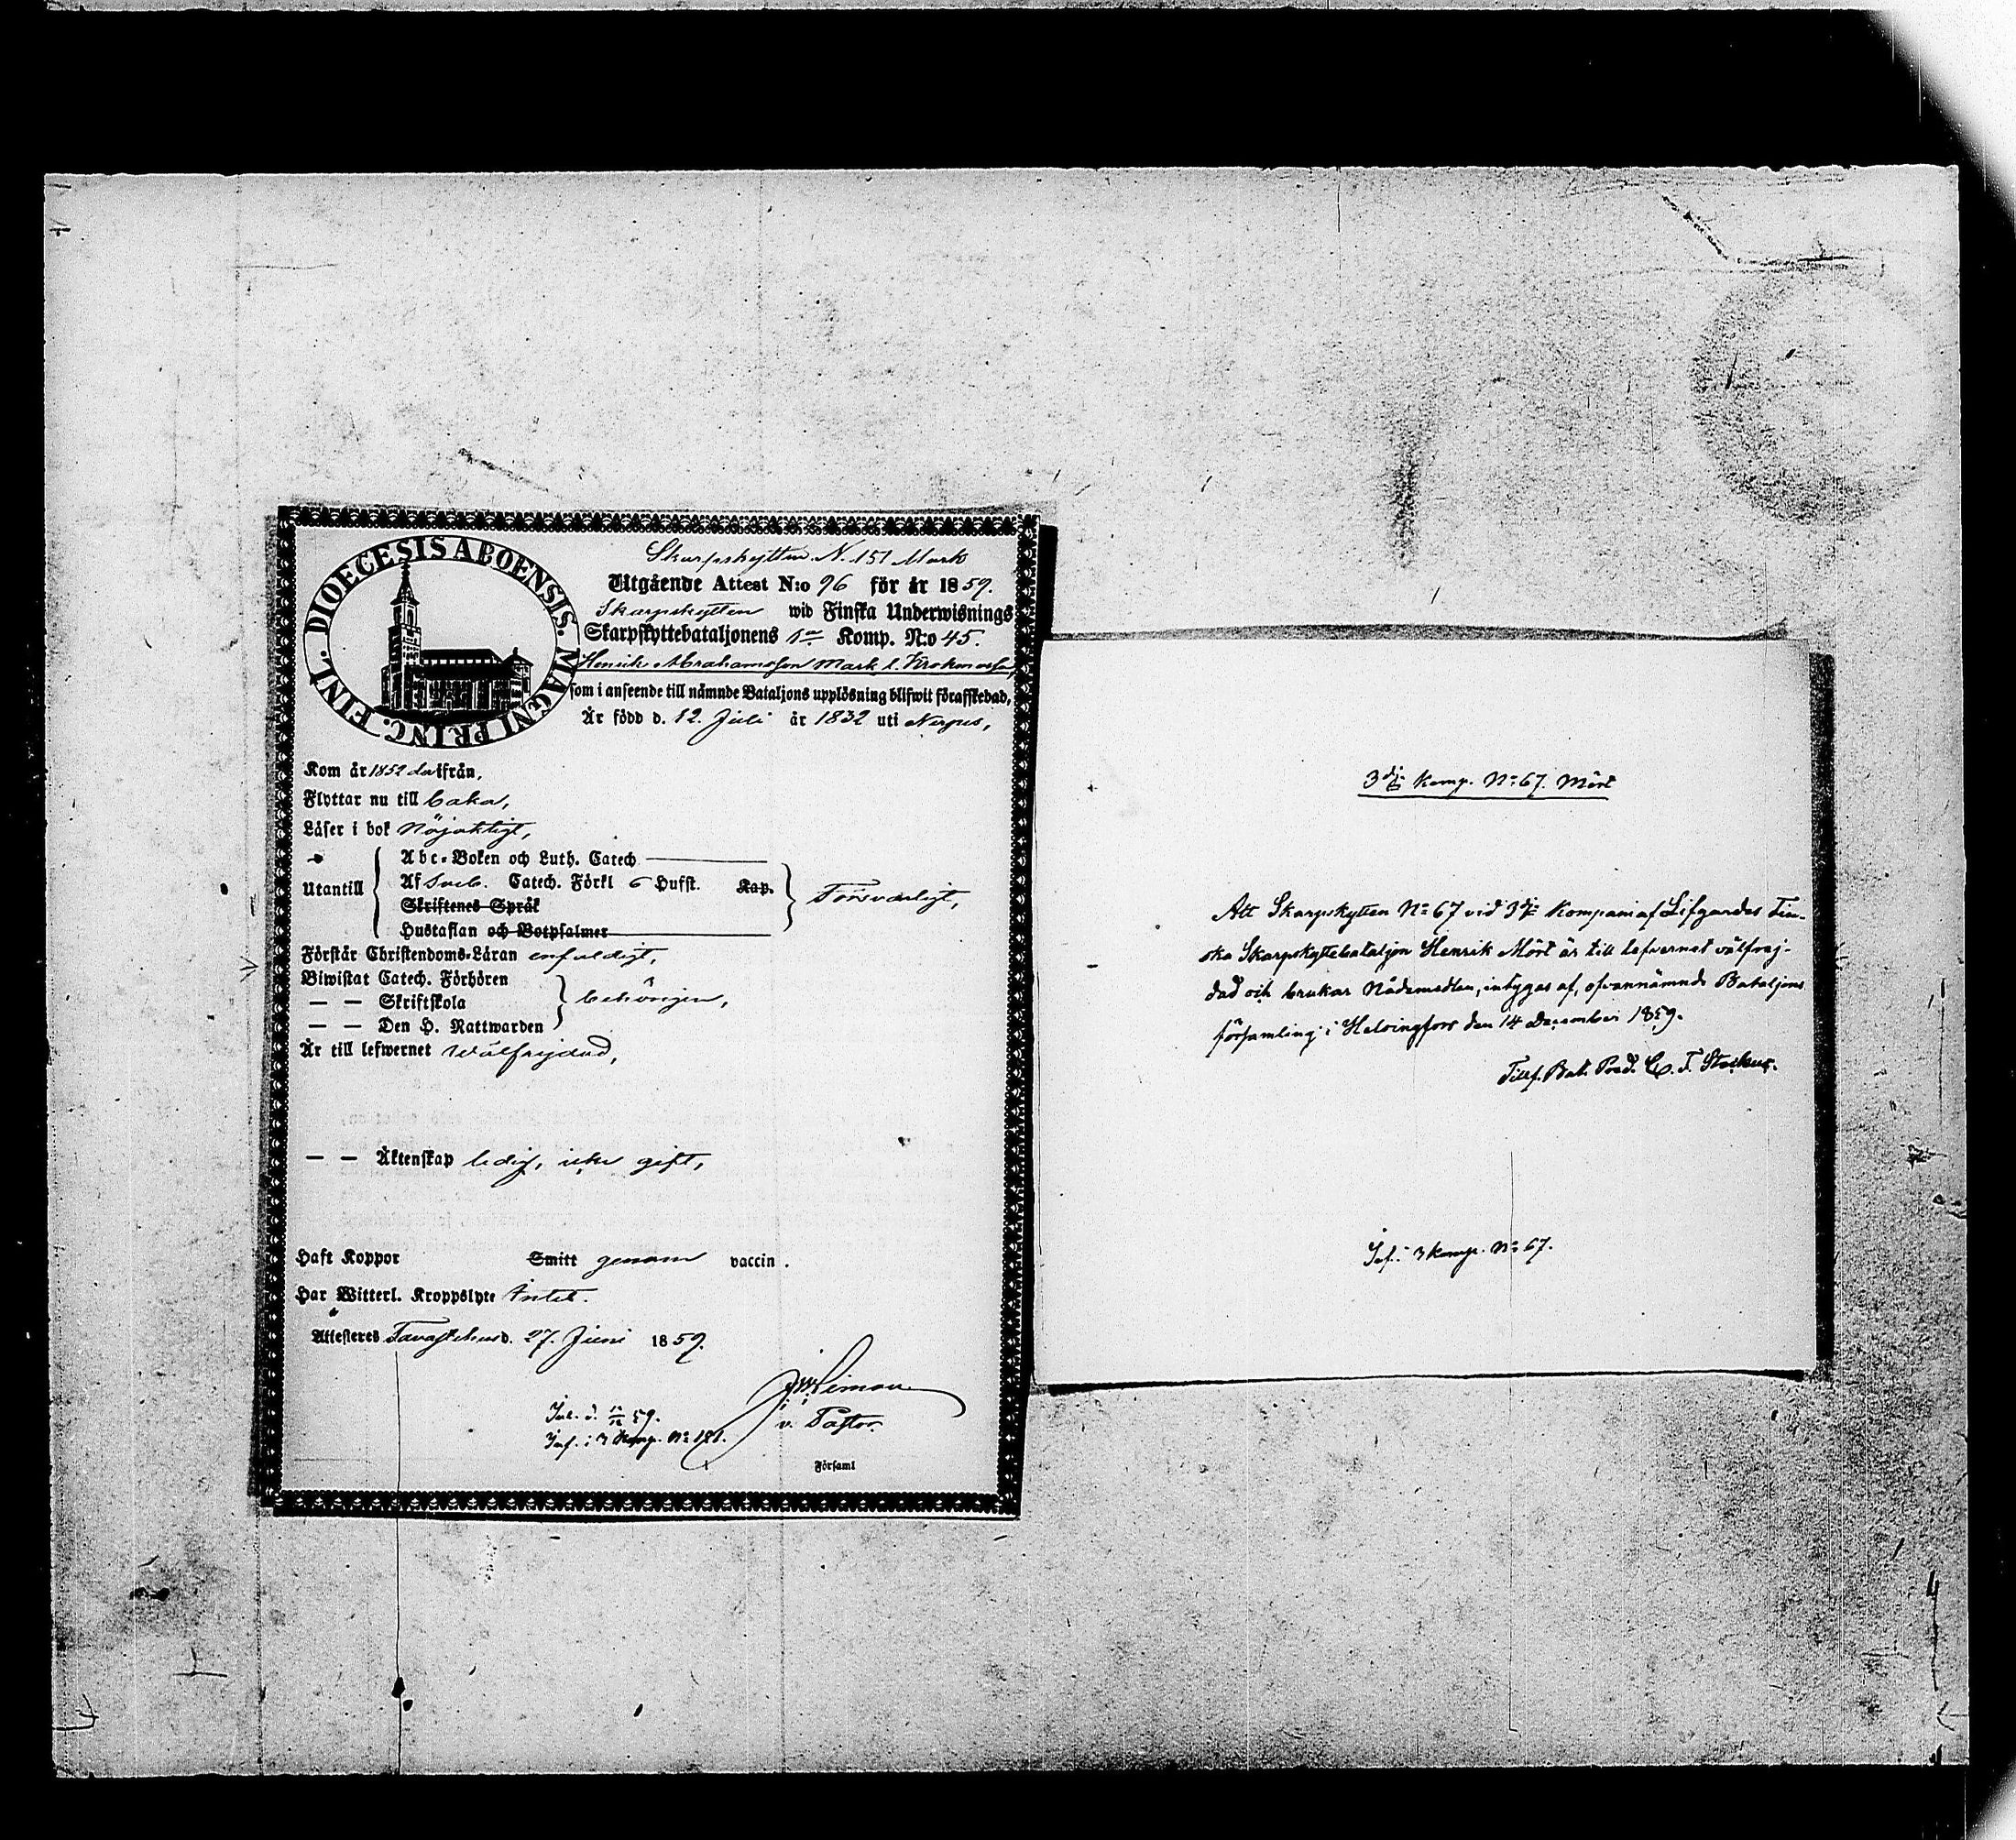 DIOECESIS ABOENSIS. MAGNI PRINC. FINL.
Skarpskytten N. 151 Mark
Utgående Attest N:o 96 för år 1859.
Skarpskytten wid Finska Underwisnings
Skarpskyttebataljonens 1:a Komp. N:o 45.
Henrik Abrahamsson Mark l.
som i anseende till nämnde Bataljons upplösning blifwit förafskedad,
Är född d. 12 Juli år 1832 uti Nerpes,
Kom år 1852 derifrån,
Flyttar nu till baka,
Läser i bok Nöjaktigt,
Abc-Boken och Luth. Catech
Utantill Af Sveb. Catech. Förkl 6 Hufst. Kap. Försvarligt,
Skriftenes Språk
Hustaflan och Botpsalmer
Förstår Christendoms-Läran enfaldigt,
Biwistat Catech. Förhören
— — Skriftskola behörigen,
— — Den H. Nattwarden
Är till lefwernet wälfrejdad,
— — Äktenskap ledig, icke gift,
Haft Koppor Smitt genom vaccin.
Har Witterl. Kroppslyte Intet.
Attesteres Tavastehus d. 27. Juni 1859.
v. Pastor.
Inf. i 3 Komp. No 151.
Församl
3dje Komp. No 67. Mört
Att Skarpskytten No 67 vid 3dje Kompani af Lifgardes Fin-
ska Skarpskyttebataljon Henrik Mört är till lefvernet välfrej-
dad och brukar Nådemedlen, intygas af, ofvannämnde Bataljons
församling i Helsingfors den 14 December 1859.
Tillf. Bat. Pred.
Inf. i 3 Komp. No 67.